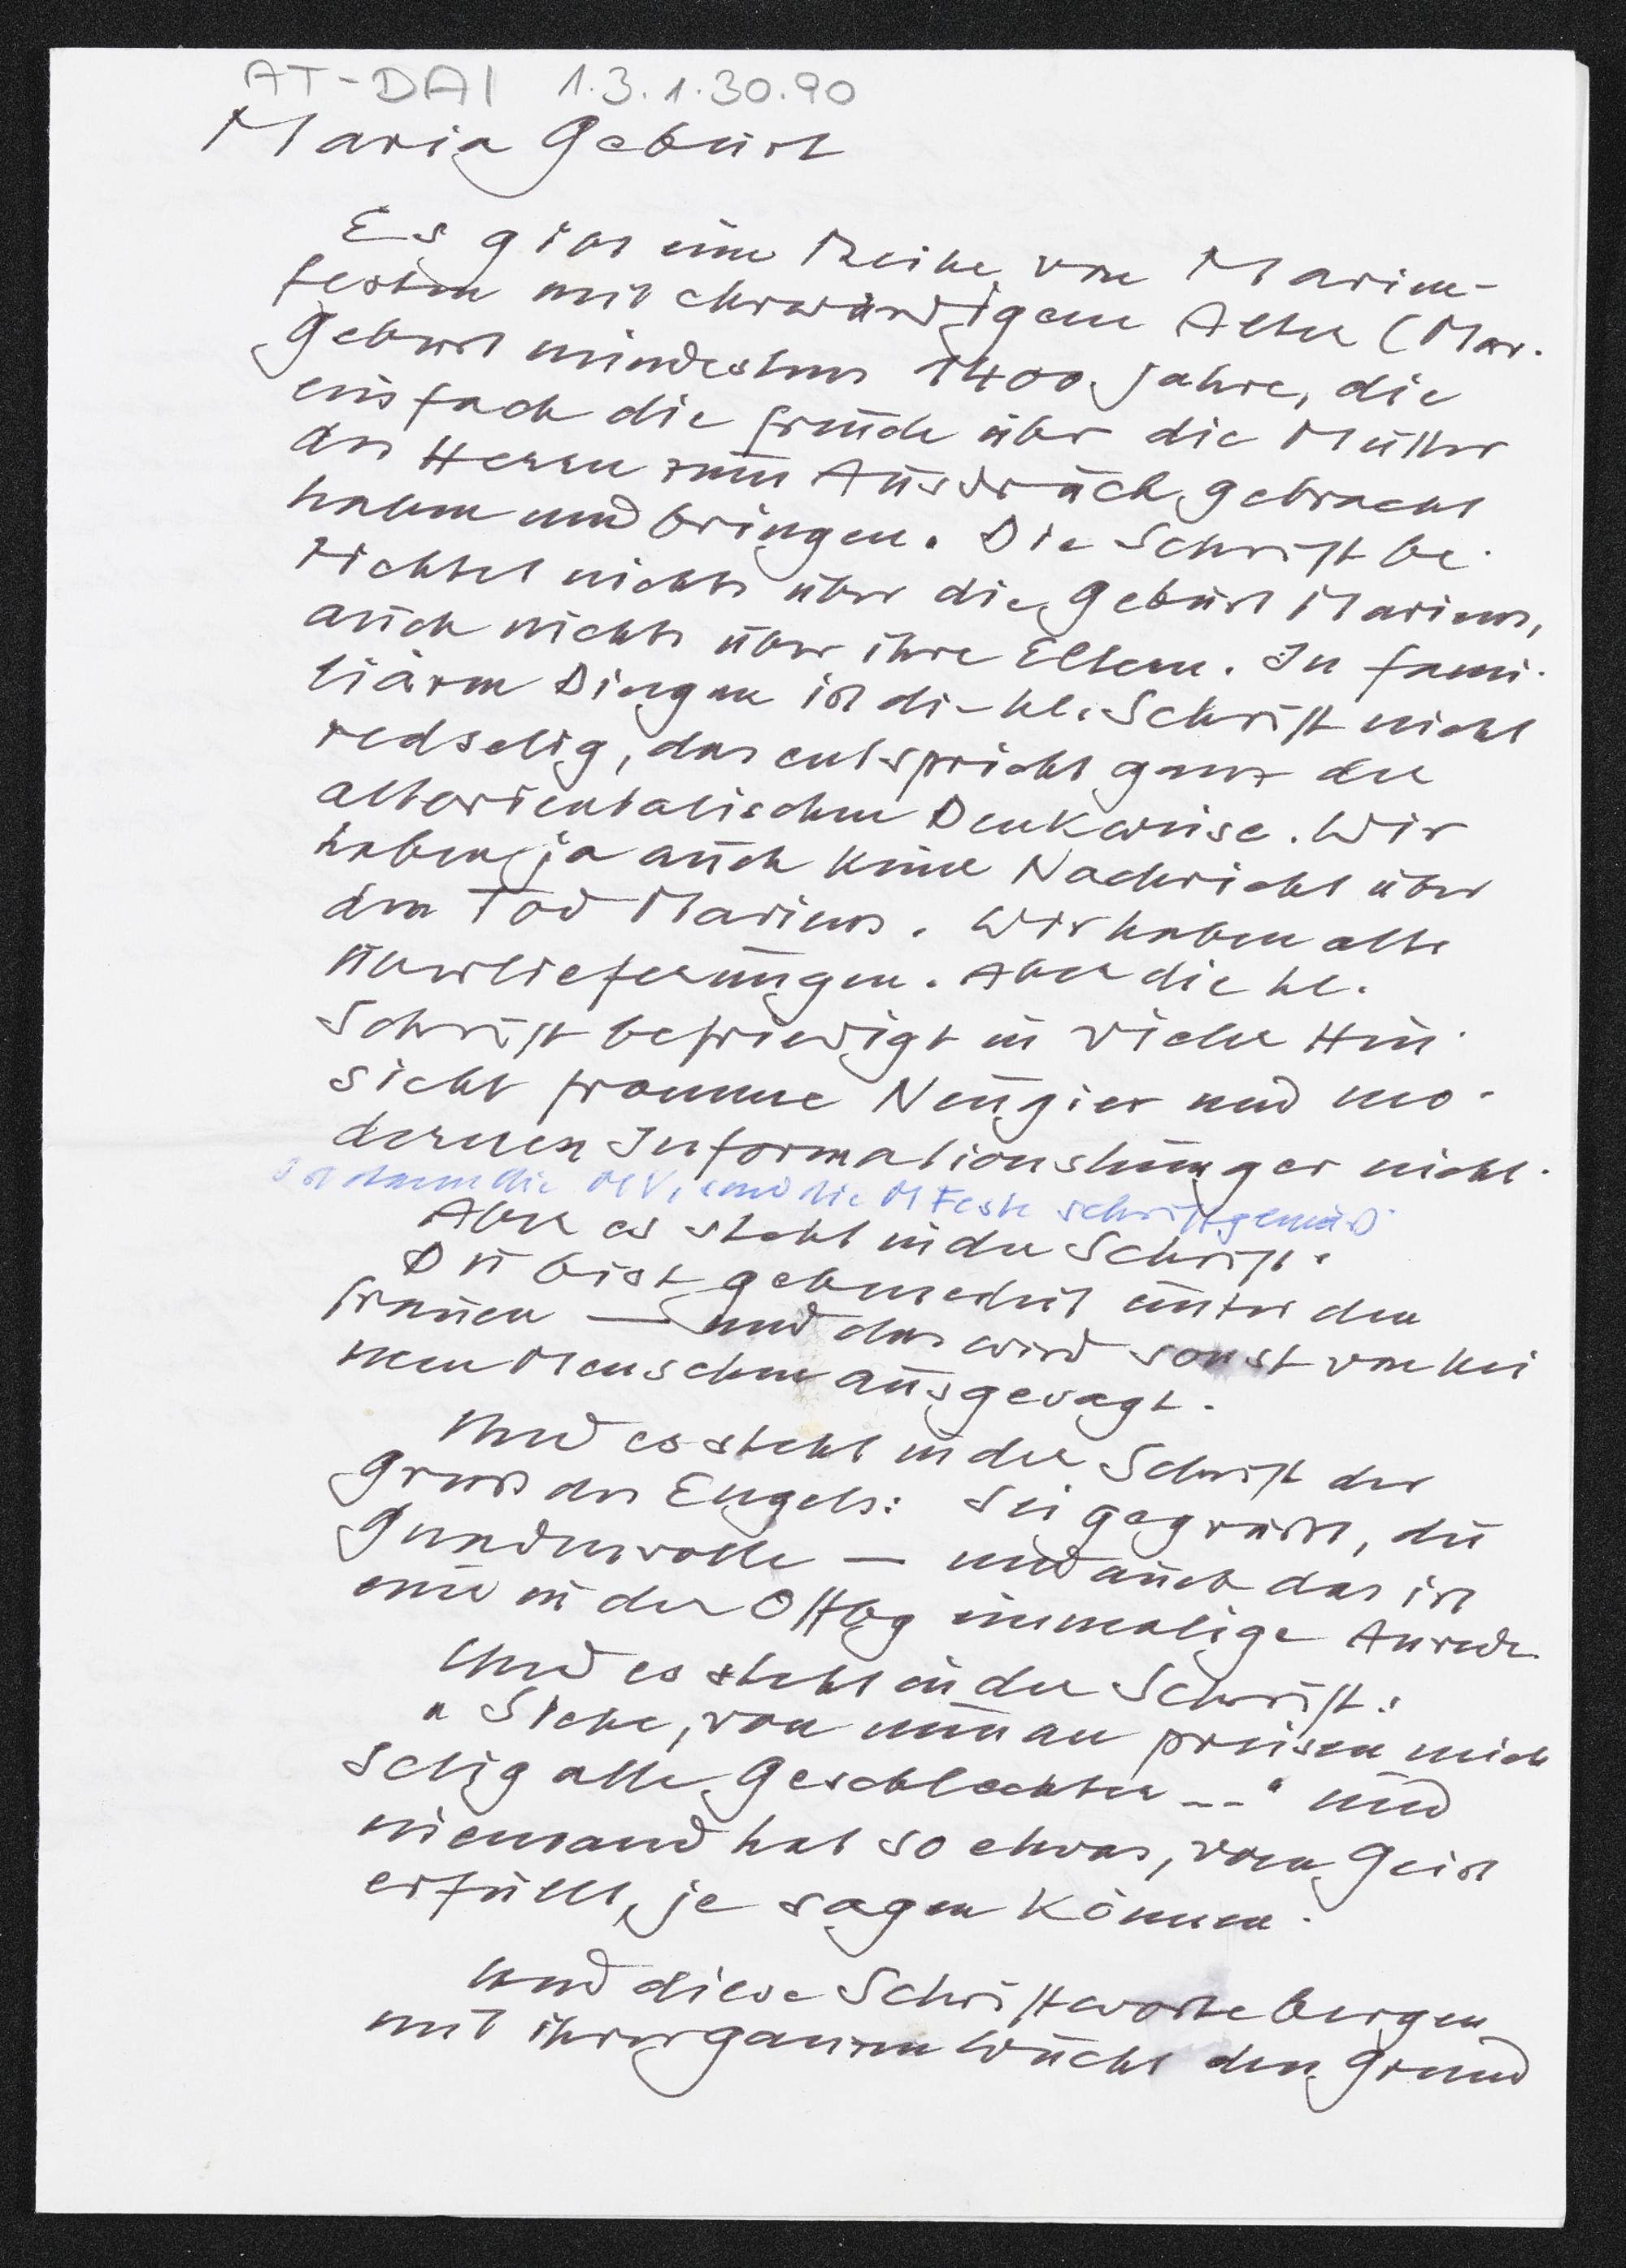 AT-DAI 1.3.1.30.90
Maria Geburt
Es gibt eine Reihe von Marien-
festen mit ehrwürdigem Alter (Mar.
Geburt mindestens 1400 Jahre, die
einfach die Freude über die Mutter
des Herrn zum Ausdruck gebracht
haben und bringen. Die Schrift be-
richtet nichts über die Geburt Mariens,
auch nichts über ihre Eltern. In fami-
liären Dingen ist die hl. Schrift nicht
redselig, das entspricht ganz der
altorientalischen Denkweise. Wir
haben ja auch keine Nachricht über
den Tod Mariens. Wir haben alte
Überlieferungen. Aber die hl.
Schrift befriedigt in vieler Hin-
sicht fromme Neugier und mo-
dernen Informationshunger nicht.
Ist dann die MV, sind die MFeste schriftgemäß
Aber es steht in der Schrift:
Du bist gebenedeit unter den
Frauen — und das wird sonst von kei
nem Menschen ausgesagt.
Und es steht in der Schrift der
Gruß des Engels: Sei gegrüßt, du
Gnadenvolle — und auch das ist
eine in der Offbg einmalige Anrede.
Und es steht in der Schrift:
"Siehe, von nun an preisen mich
selig alle Geschlechter ..." und
niemand hat so etwas, vom Geist
erfüllt, je sagen können.
Und diese Schriftworte bergen
mit ihrer ganzen Wucht den Grund